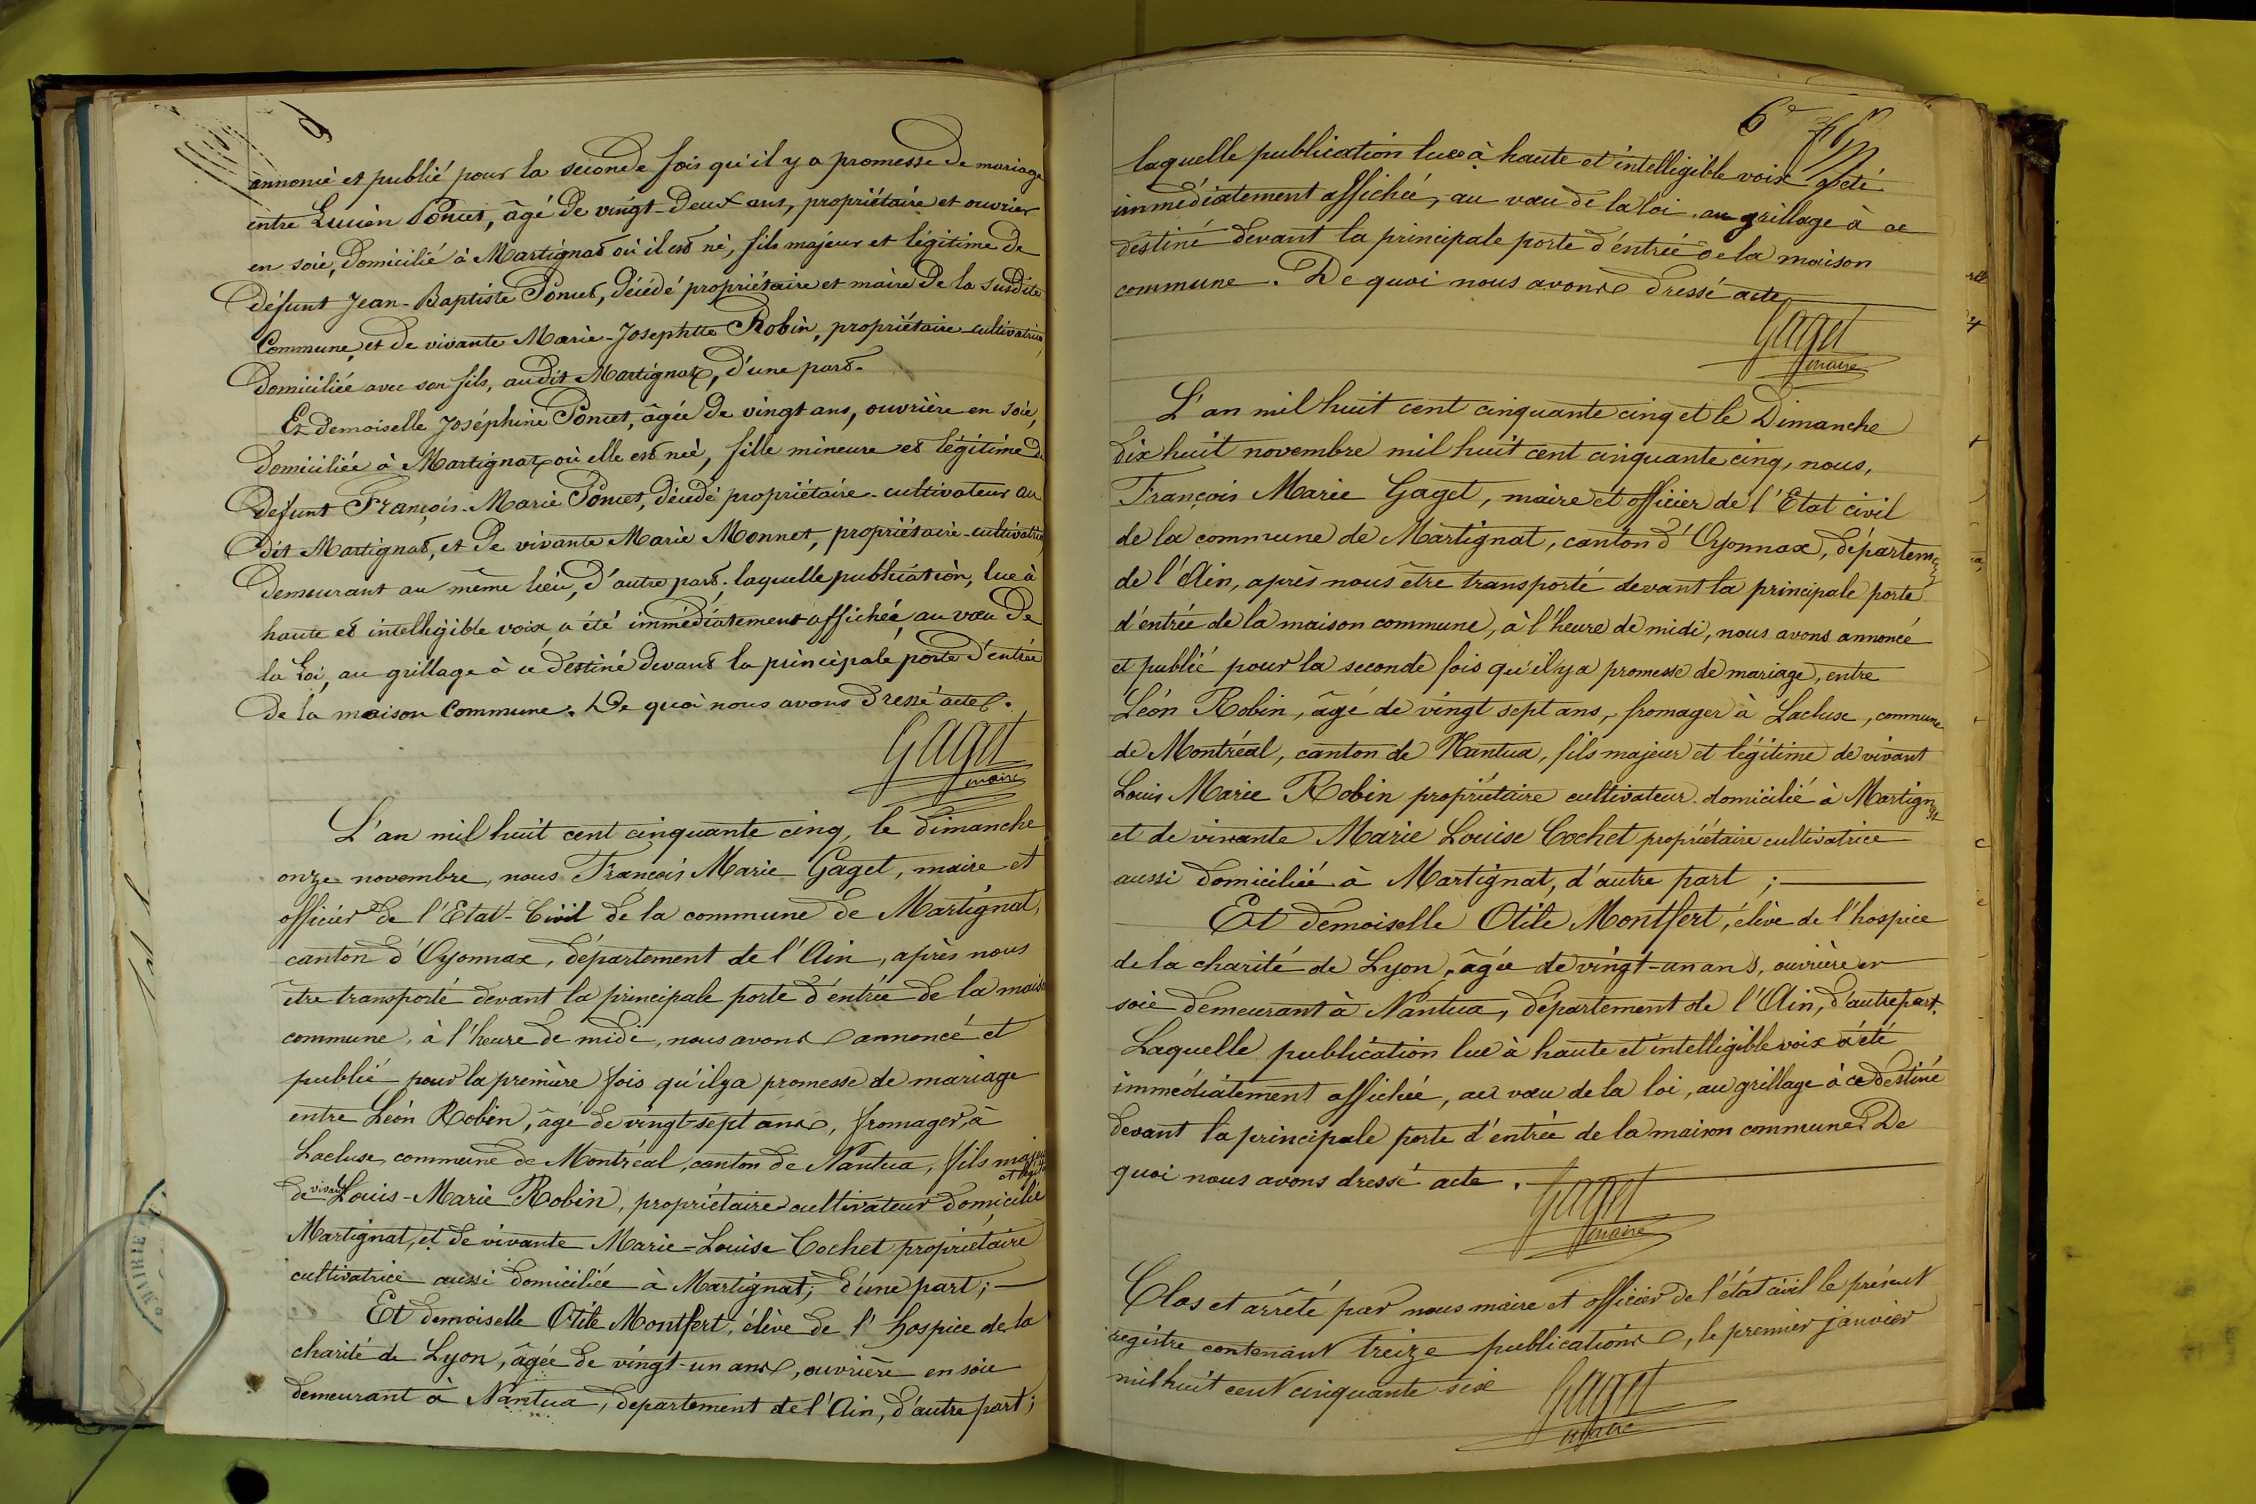 annoncé et publié pour la seconde fois qu'il y a promesse de mariage
entre Lucien Poncet, âgé de vingt-deux ans, propriétaire et ouvrier
en soie, domicilié à Martignat où il est né, fils majeur et légitime de
défunt Jean-Baptiste Poncet, décédé propriétaire et maire de la susdite
Commune, et de vivante Marie-Josephtte Robin, propriétaire-cultivatrice,
domiciliée avec son fils, audit Martignat, d'une part.
Et demoiselle Joséphine Poncet, âgée de vingt ans, ouvrière en soie,
domiciliée à Martignat où elle est née, fille mineure et légitime de
défunt François-Marie Poncet, décédé propriétaire-cultivateur au
dit Martignat, et de vivante Marie Monnet, propriétaire-cultivatrice
demeurant au même lieu, d'autre part; laquelle publication, lue à
haute et intelligible voix a été immédiatement affichée, au vœu de
la Loi, au grillage à ce destiné devant la principale porte d'entrée
de la maison Commune. De quoi nous avons dressé acte.
Gaget
maire
L'an mil huit cent cinquante cinq, le dimanche
onze novembre, nous François Marie Gaget, maire et
officier de l'Etat-Civil de la commune de Martignat,
canton d'Oyonnax, département de l'Ain, après nous
être transporté devant la principale porte d'entrée de la maison
commune, à l'heure de midi, nous avons annoncé et
publié pour la première fois qu'il y a promesse de mariage
entre Léon Robin, âgé de vingt-sept ans, fromager, à
Lacluse, commune de Montréal, canton de Nantua, fils majeur
de vivant Louis-Marie Robin, propriétaire cultivateur domicilié
Martignat, et de vivante Marie-Louise Cochet propriétaire
cultivatrice aussi domiciliée à Martignat, d'une part;
Et demoiselle Otile Montfert, élève de l'hospice de la
charité de Lyon, âgée de vingt-un ans, ouvrière en soie
demeurant à Nantua, département de l'Ain, d'autre part;
6e
laquelle publication lue à haute et intelligible voix a été
immédiatement affichée, au vœu de la loi, au grillage à ce
destiné devant la principale porte d'entrée de la maison
commune. De quoi nous avons dressé acte
Gaget
maire
L'an mil huit cent cinquante cinq et le Dimanche
dix huit novembre mil huit cent cinquante cinq, nous,
François Marie Gaget, maire et officier de l'Etat civil
de la commune de Martignat, canton d'Oyonnax, département
de l'Ain, après nous être transporté devant la principale porte
d'entrée de la maison commune, à l'heure de midi, nous avons annoncé
et publié pour la seconde fois qu'il y a promesse de mariage, entre
Léon Robin, âgé de vingt sept ans, fromager à Lacluse, commune
de Montréal, canton de Nantua, fils majeur et légitime de vivant
Louis Marie Robin propriétaire cultivateur domicilié à Martignat
et de vivante Marie Louise Cochet propriétaire cultivatrice
aussi domiciliée à Martignat, d'autre part;
Et demoiselle Otile Montfert, élève de l'hospice
de la charité de Lyon, âgée de vingt-un ans, ouvrière en
soie demeurant à Nantua, département de l'Ain, d'autre part.
Laquelle publication lue à haute et intelligible voix a été
immédiatement affichée, au vœu de la loi, au grillage à ce destiné
devant la principale porte d'entrée de la maison commune. De
quoi nous avons dressé acte.
Gaget
maire
Clos et arrêté par nous maire et officier de l'état civil le présent
registre contenant treize publications, le premier janvier
mil huit cent cinquante six
Gaget
maire
MAIRIE